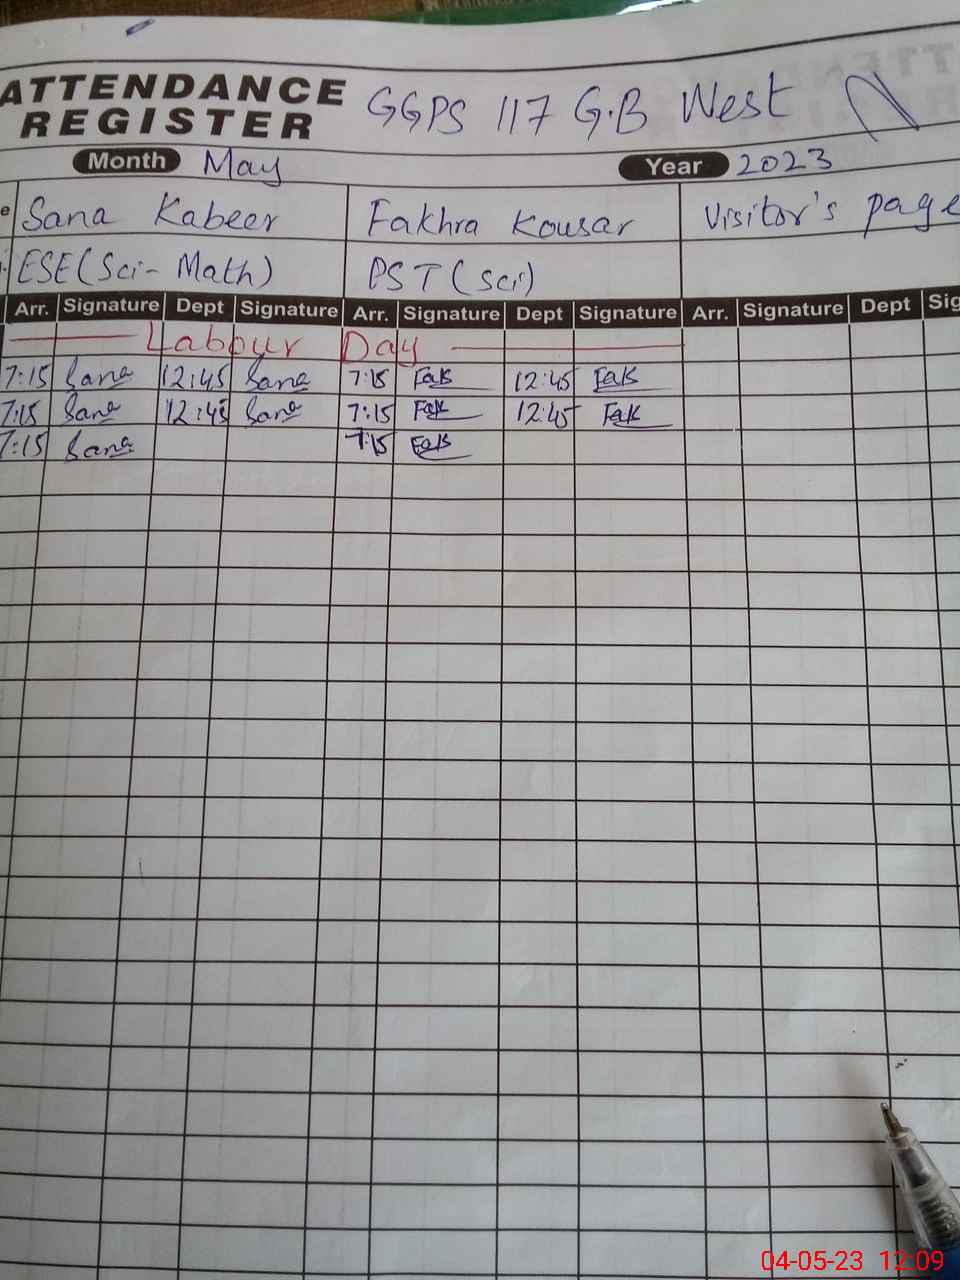 ATTENDANCE REGISTER GGPS 117 G.B West
Month May Year 2023
e Sana Kabeer Fakhra Kousar Visitor's page
ESE(Sci-Math) PST(Sci)
Arr. Signature Dept Signature Arr. Signature Dept Signature Arr. Signature Dept Sig
Labour Day
7:15 Sana 12:45 Sana 7:15 Fak 12:45 Fak
7:15 Sana 12:45 Sana 7:15 Fak 12:45 Fak
7:15 Sana 7:15 Fak
04-05-23 12:09